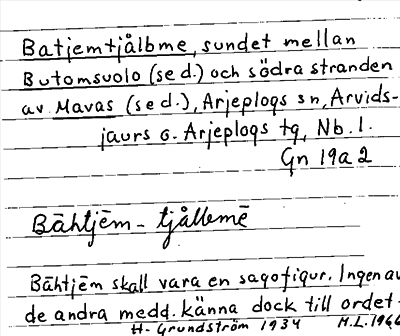 Batjemtjålbme, sundet mellan
Butomsuolo (se d.) och södra stranden
av Mavas (se d.), Arjeplogs sn, Arvids-
jaurs o. Arjeplogs tg, Nb. l.
Gn 19a2
Bāhtjēm - tjålbmē
Bāhtjēm skall vara en sagofigur. Ingen av
de andra medd. känna dock till ordet.
H. Grundström 1934 H.L. 1966